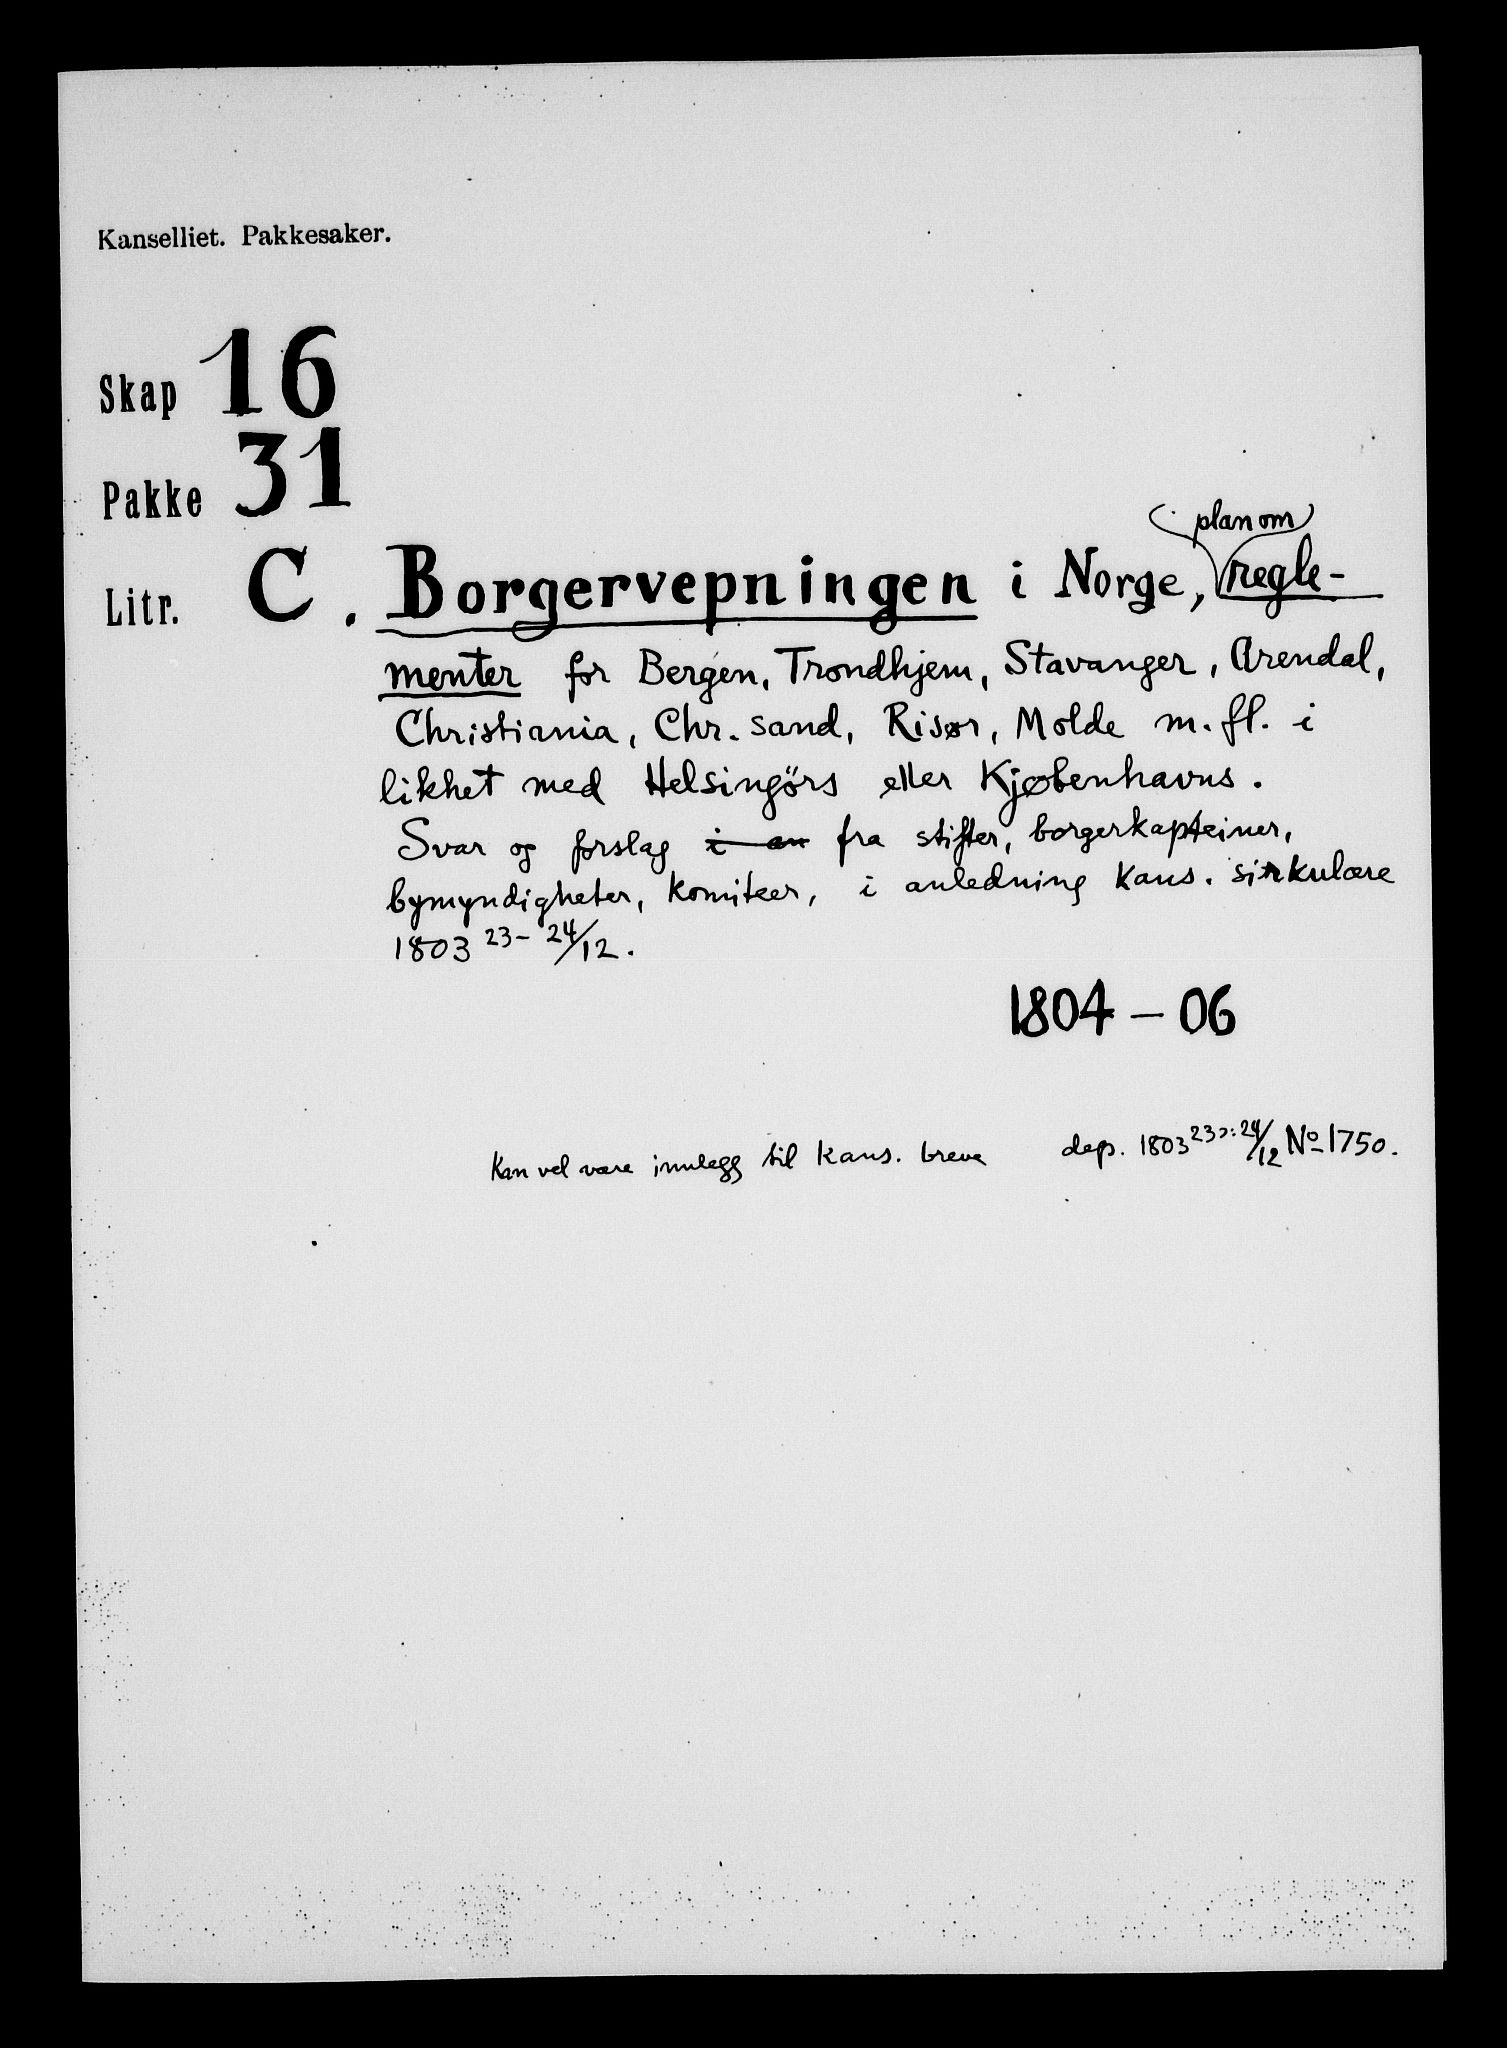 Kanselliet. Pakkesaker.
Skap 16
Pakke 31
Litr. C. Borgervepningen i Norge, (planom) regle-
menter for Bergen, Trondhjem, Stavanger, Arendal,
Christiania, Chr. sand, Risør, Molde m. fl. i
likhet med Helsingörs eller Kjøbenhavns.
Svar og forslag i an fra stifter, borgerkapteiner,
bymyndigheter, komiteer, i anledning kans. sirkulære
1803 23- 24/12.
1804 - 06
Kan vel være innlegg til kans. breve dep. 1803 23 ɔ: 24/12 No 1750.